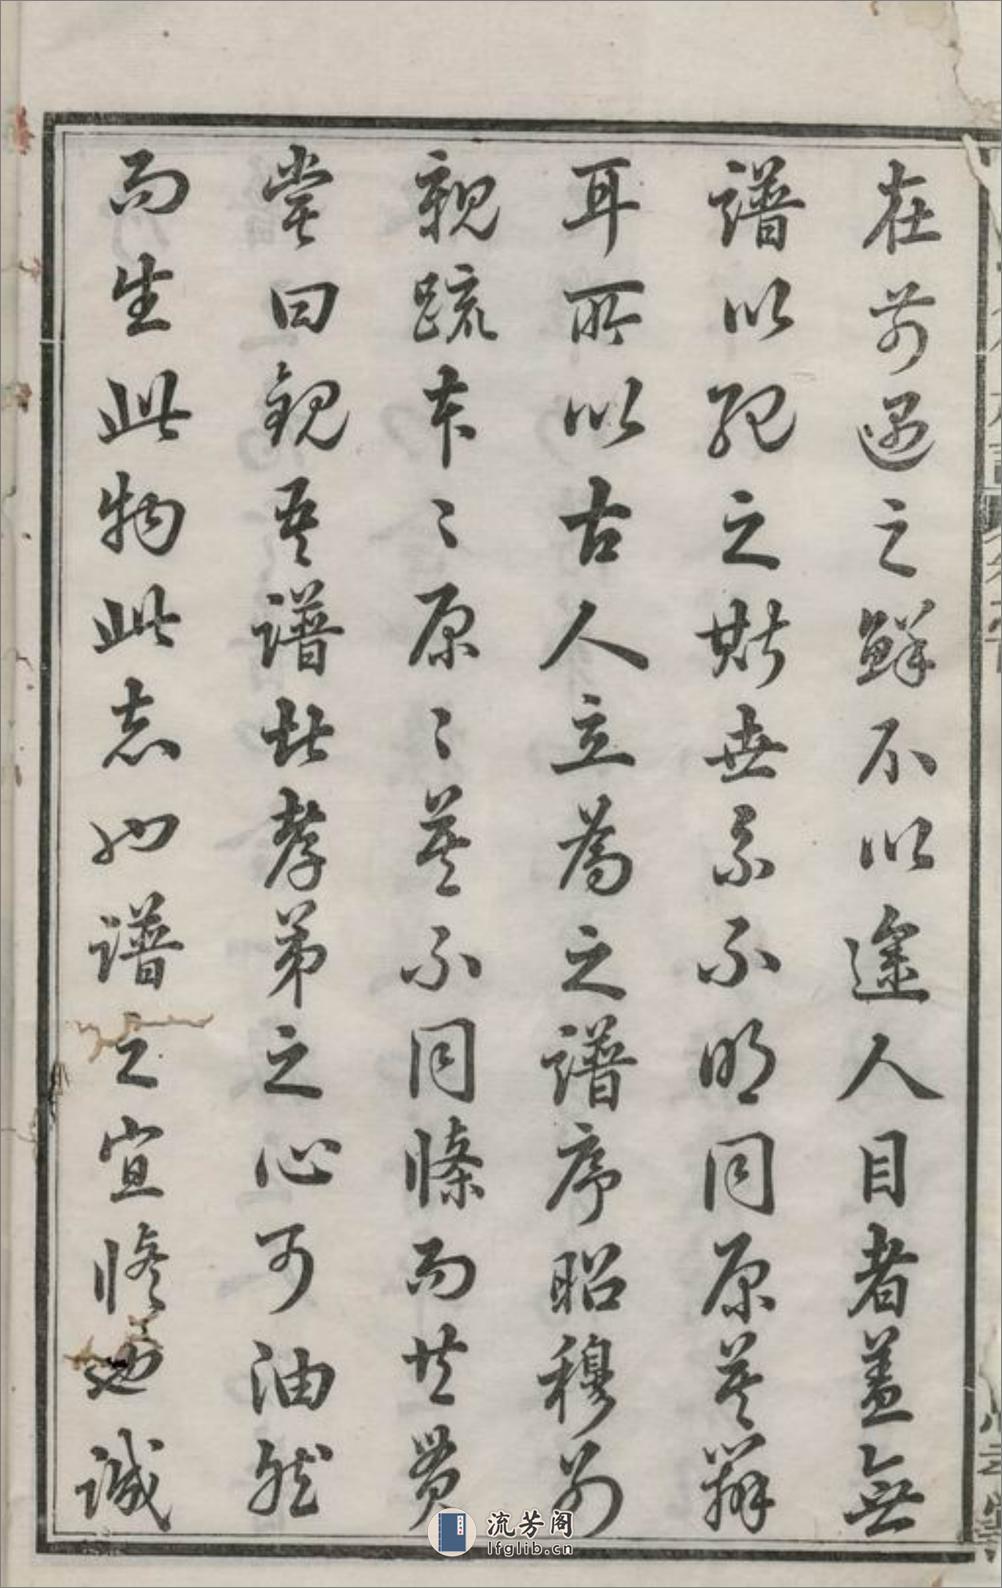 在前遇之鮮不以途人目者蓋無
譜以紀之斯世系不明同原莫辨
耳所以古人立為之譜序昭穆別
親疏本〻原〻莫不同條而共貫
嘗曰觀吾譜此孝弟之心可油然
而生此物此志也譜之宜修也誠
流芳阁
lfglib.cn